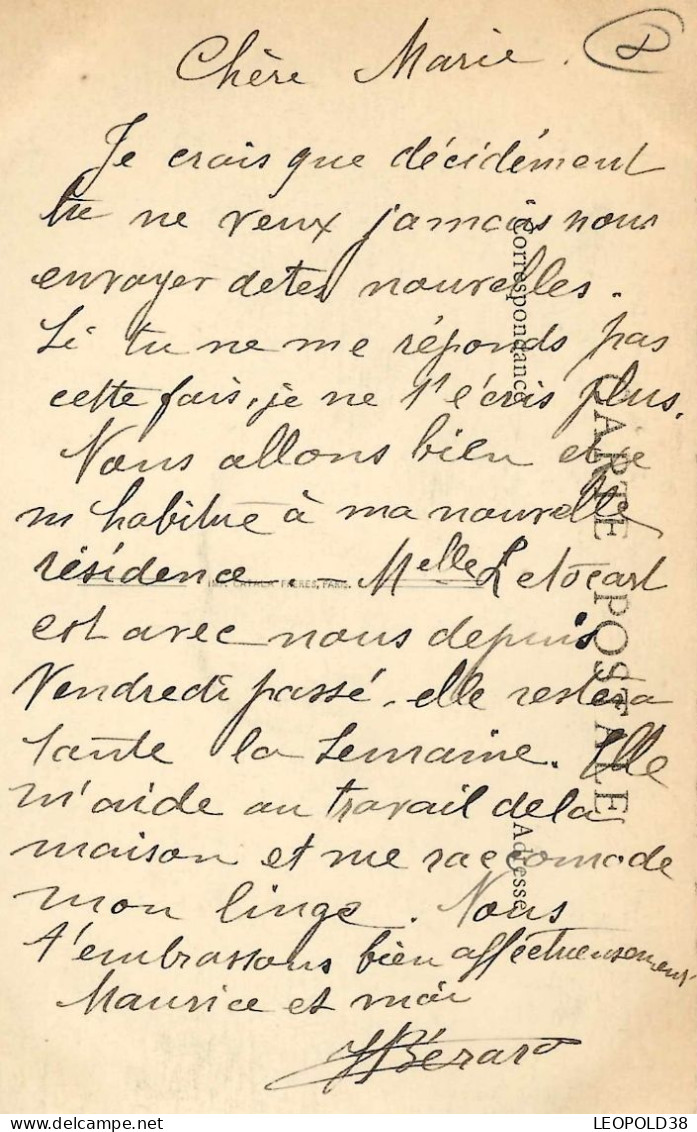 Chère Marie.
Je crois que décidément
tu ne veux jamais nous
envoyer de tes nouvelles.
Si tu ne me réponds pas
cette fois, je ne t'écris plus.
Nous allons bien et je
m'habitue à ma nouvelle
résidence. — Melle Letocart
est avec nous depuis
Vendredi passé. elle restera
toute la semaine. Elle
m'aide au travail de la
maison et me raccomode
mon linge. Nous
t'embrassons bien affectueusement
Maurice et moi
Bérard
Correspondance
CARTE POSTALE
Adresse
IMP. CATALA FRÈRES, PARIS.
LEOPOLD38